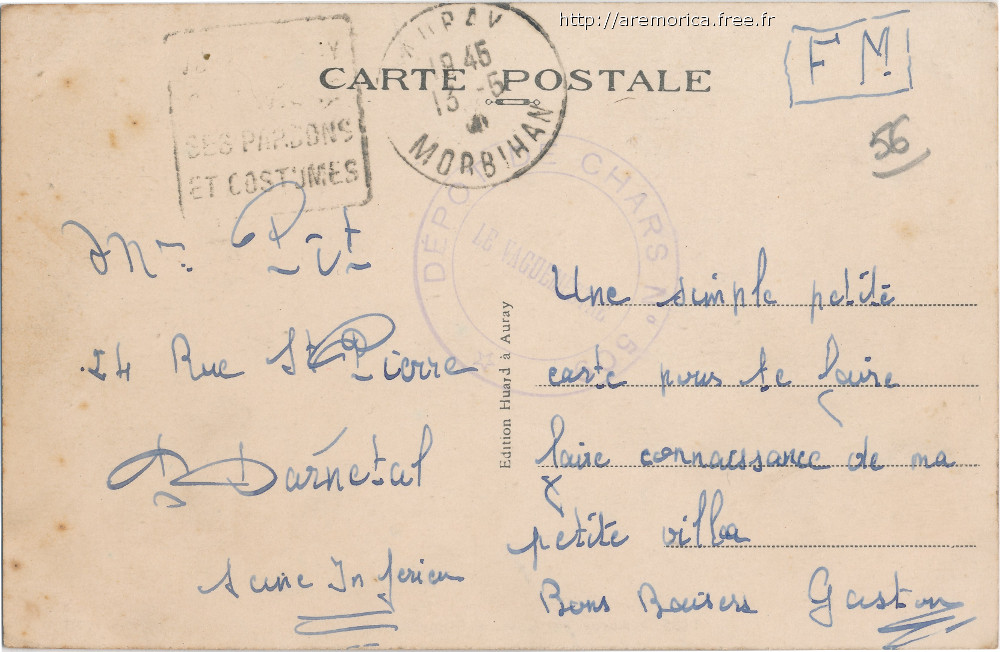 http://aremorica.free.fr
CARTE POSTALE
F M
56
AURAY
18 45
13 -5
MORBIHAN
SES PARDONS
ET COSTUMES
DÉPÔT DE CHARS N° 508
LE VAGUEMESTRE
Mme
24 Rue St Pierre
Darnétal
Seine Inferieu
Edition Huard à Auray
Une simple petite
carte pour te faire
faire connaissance de ma
petite villa
Bons Baisers Gaston